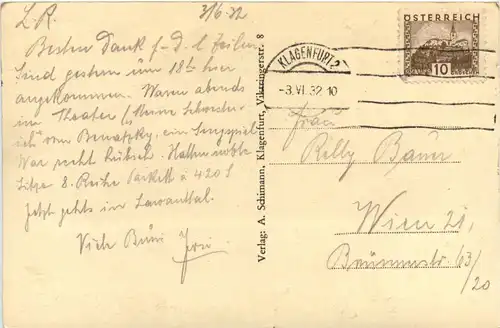 L. R. 3/6. 32
Besten Dank f. d. l. Zeilen
Sind gestern um 18 hier
angekommen. Waren abends
im Theater ("Meine Schwester
ich" von Benatzky, ein Singspiel
War recht hübsch. Hatten noble
Sitze 8. Reihe Parkett à 4.20 S
Jetzt gehts ins Lavanttal.
Viele Bussi
Verlag: A. Schimann, Klagenfurt, Viktringerstr. 8
ÖSTERREICH
GÜSSING BURGENLAND
10
KLAGENFURT 2
-3.VI.32.10
Frau
Relly Bauer
Wien 21,
Brünnerstr. 63/20